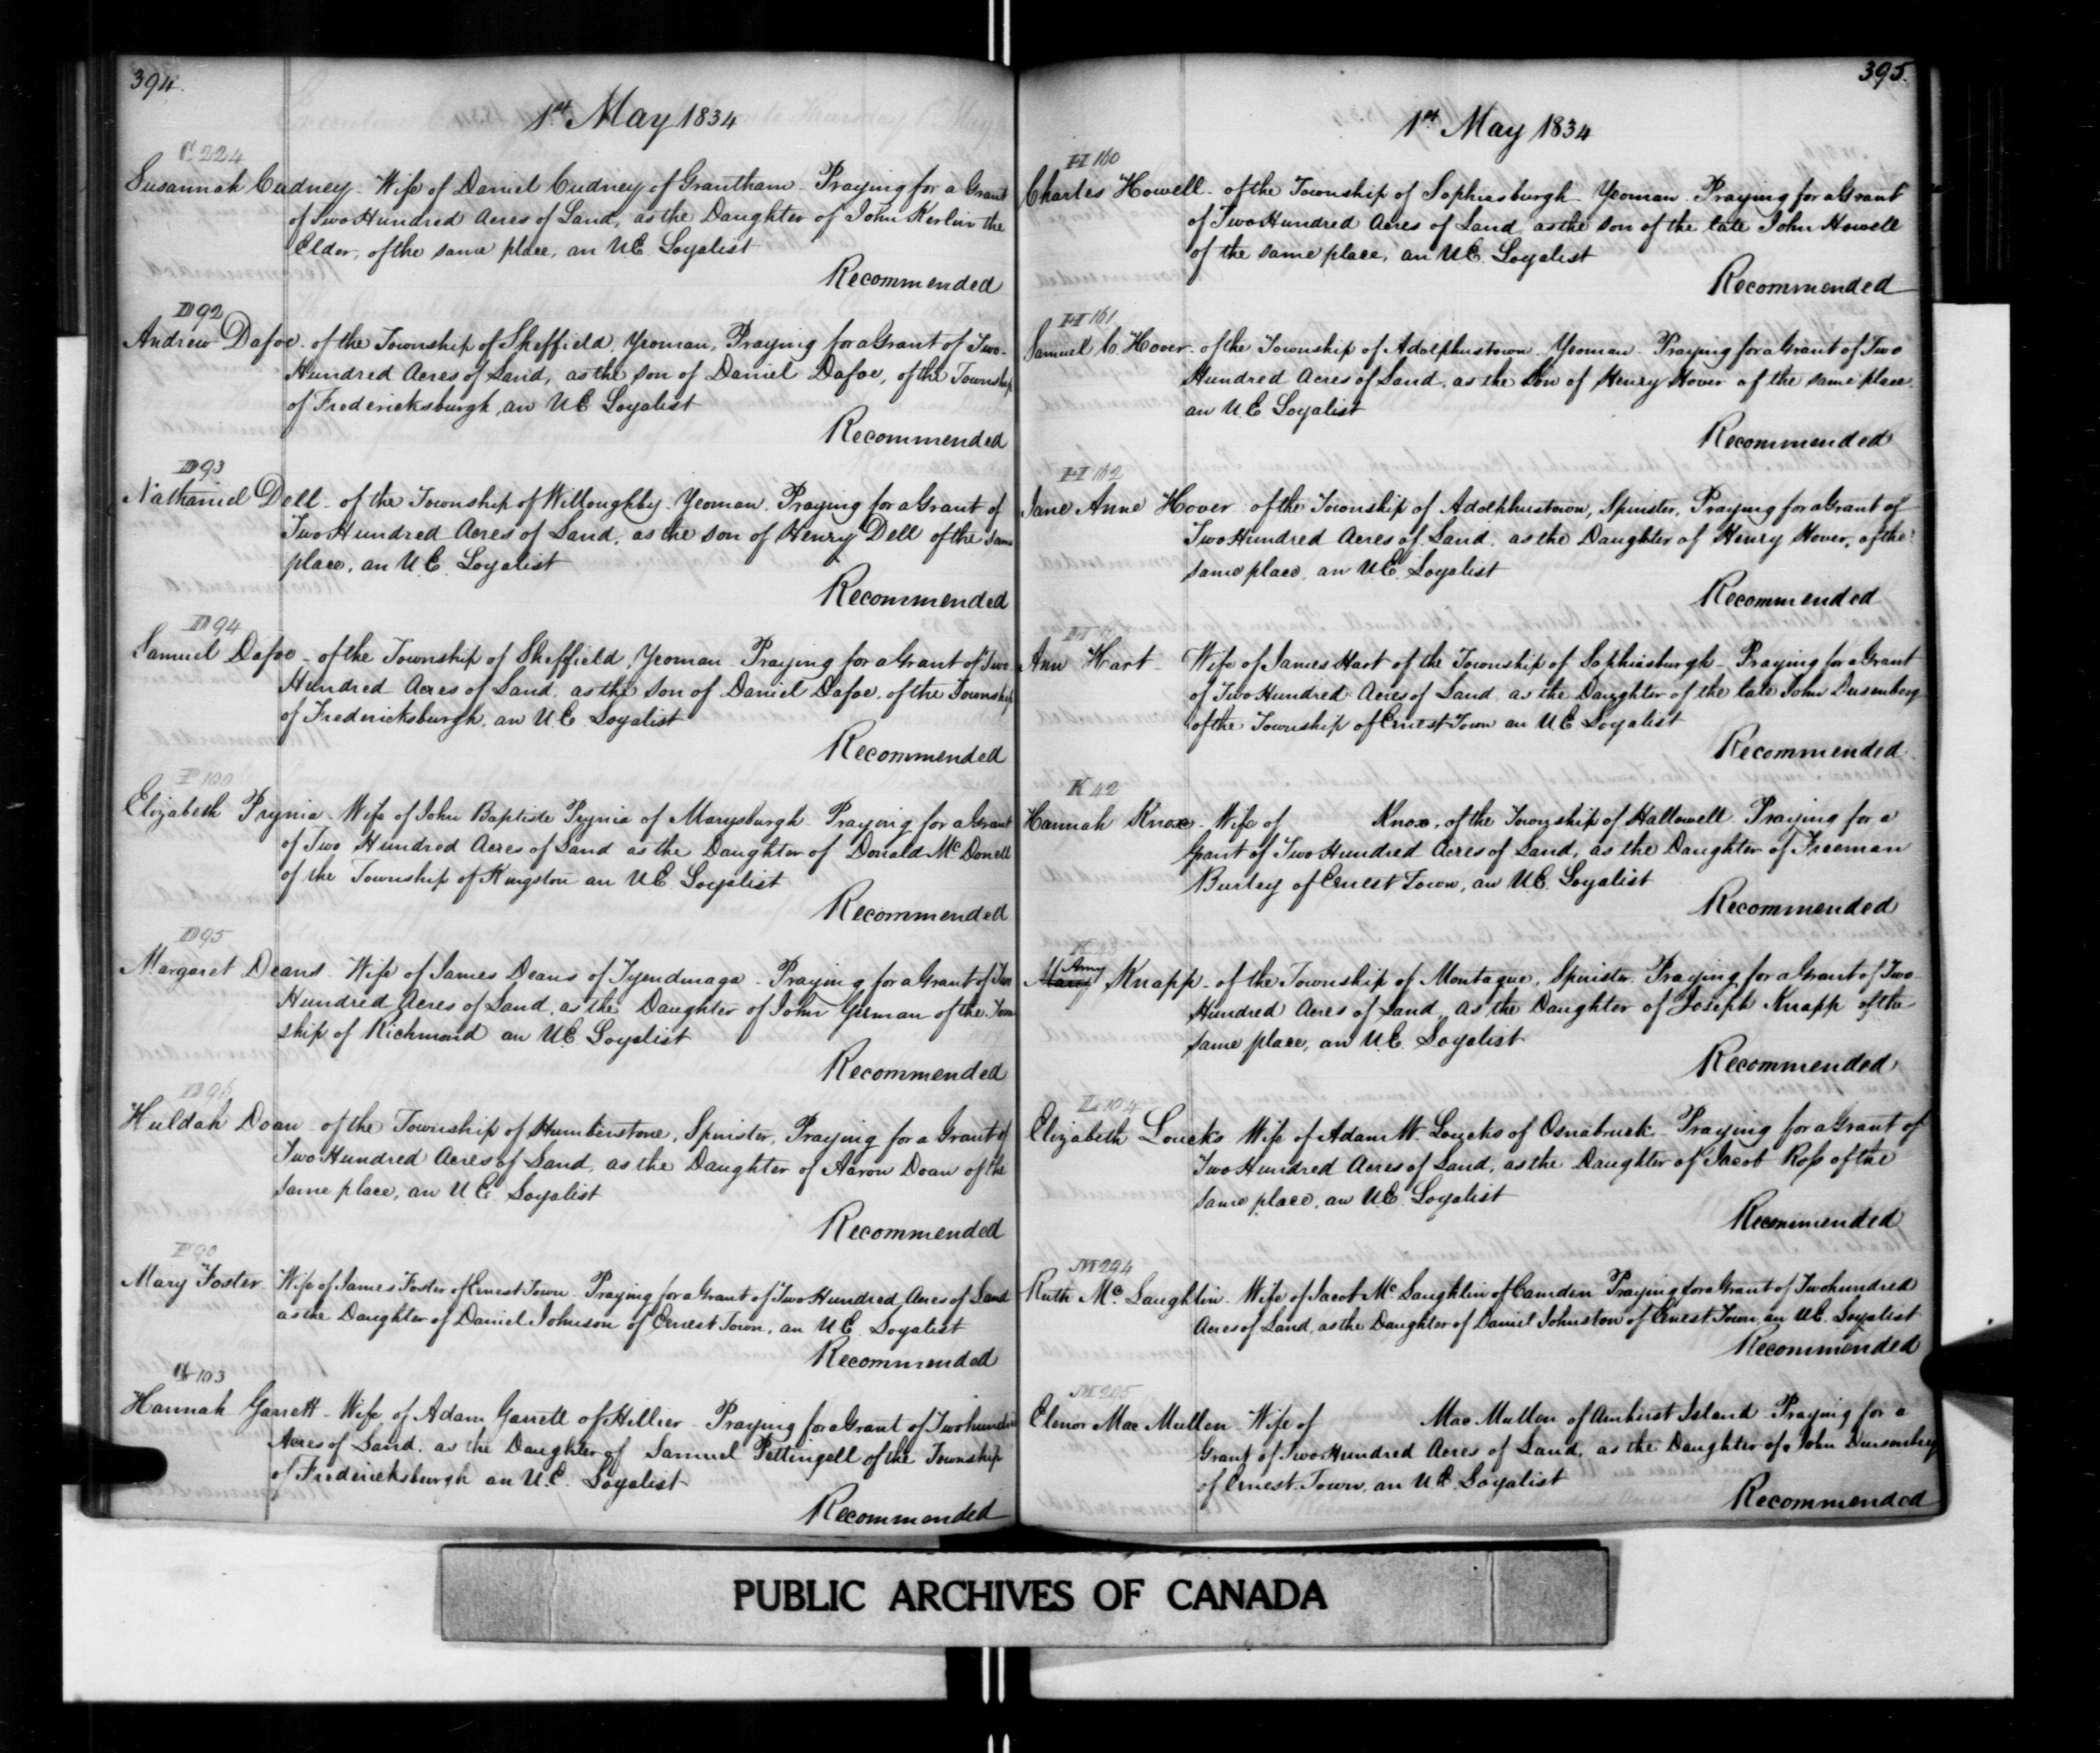 394.
1st May 1834
C 224
Susannah Cudney - Wife of Daniel Cudney of Grantham - Praying for a Grant
of Two Hundred Acres of Land, as the Daughter of John Kerlin the
Elder, of the same place, an U.E. Loyalist
Recommended
D 92
Andrew Dafoe - of the Township of Sheffield, Yeoman, Praying for a Grant of Two
Hundred Acres of Land, as the son of Daniel Dafoe, of the Township
of Fredericksburgh, an U.E. Loyalist
Recommended
D 93
Nathaniel Dell - of the Township of Willoughby - Yeoman. Praying for a Grant of
Two Hundred Acres of Land, as the son of Henry Dell of the same
place, an U.E. Loyalist
Recommended
D 94
Samuel Dafoe - of the Township of Sheffield, Yeoman - Praying for a Grant of Two
Hundred Acres of Land, as the son of Daniel Dafoe, of the Township
of Fredericksburgh, an U.E. Loyalist
Recommended
P 100
Elizabeth Prynia - Wife of John Baptiste Prynia of Marysburgh - Praying for a Grant
of Two Hundred Acres of Land as the Daughter of Donald McDonell
of the Township of Kingston an U.E. Loyalist
Recommended
D 95
Margaret Deans - Wife of James Deans of Tyendinaga - Praying for a Grant of Two
Hundred Acres of Land, as the Daughter of John German of the Town
ship of Richmond an U.E. Loyalist
Recommended
D 96
Huldah Doan - of the Township of Humberstone, Spinster, Praying for a Grant of
Two Hundred Acres of Land, as the Daughter of Aaron Doan of the
same place, an U.E. Loyalist
Recommended
F 90
Mary Foster - Wife of James Foster of Ernest Town - Praying for a Grant of Two Hundred Acres of Land
as the Daughter of Daniel Johnson of Ernest Town, an U.E. Loyalist
Recommended
G 103
Hannah Garrett - Wife of Adam Garrett of Hillier - Praying for a Grant of Two hundred
Acres of Land, as the Daughter of Samuel Pettingell of the Township
of Fredericksburgh an U.E. Loyalist
Recommended
395.
1st May 1834
H 160
Charles Howell - of the Township of Sophiasburgh - Yeoman - Praying for a Grant
of Two Hundred Acres of Land, as the son of the late John Howell
of the same place, an U.E. Loyalist
Recommended
H 161
Samuel C. Hover - of the Township of Adolphustown - Yeoman - Praying for a Grant of Two
Hundred Acres of Land, as the Son of Henry Hover of the same place
an U.E. Loyalist
Recommended
H 162
Jane Anne Hover - of the Township of Adolphustown, Spinster, Praying for a Grant of
Two Hundred Acres of Land, as the Daughter of Henry Hover, of the
same place, an U.E. Loyalist
Recommended
H
Ann Hart - Wife of James Hart of the Township of Sophiasburgh - Praying for a Grant
of Two Hundred Acres of Land, as the Daughter of the late John Dusenberg
of the Township of Ernest Town an U.E. Loyalist
Recommended
K 42
Hannah Knox - Wife of Knox, of the Township of Hallowell - Praying for a
Grant of Two Hundred Acres of Land, as the Daughter of Freeman
Burley of Ernest Town, an U.E. Loyalist
Recommended
K 43
Amy
Mary Knapp - of the Township of Montague, Spinster - Praying for a Grant of Two
Hundred Acres of Land, as the Daughter of Joseph Knapp of the
same place, an U.E. Loyalist
Recommended
L 104
Elizabeth Loucks Wife of Adam W. Loucks of Osnabruck - Praying for a Grant of
Two Hundred Acres of Land, as the Daughter of Jacob Ross of the
same place, an U.E. Loyalist
Recommended
M 294
Ruth McLaughlin - Wife of Jacob McLaughlin of Camden Praying for a Grant of Two hundred
Acres of Land, as the Daughter of Daniel Johnston of Ernest Town, an U.E. Loyalist
Recommended
M 295
Elenor Mac Mullen - Wife of Mac Mullen of Amherst Island - Praying for a
Grant of Two Hundred Acres of Land, as the Daughter of John Dusenbery
of Ernest Town, an U.E. Loyalist
Recommended
PUBLIC ARCHIVES OF CANADA